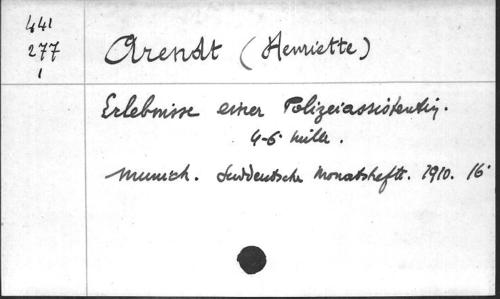 441
277
1
Arendt (Henriette)
Erlebnisse einer Polizeiassistentin.
4-6 mille.
Munich. Süddeutsche Monatshefte. 1910. 16°